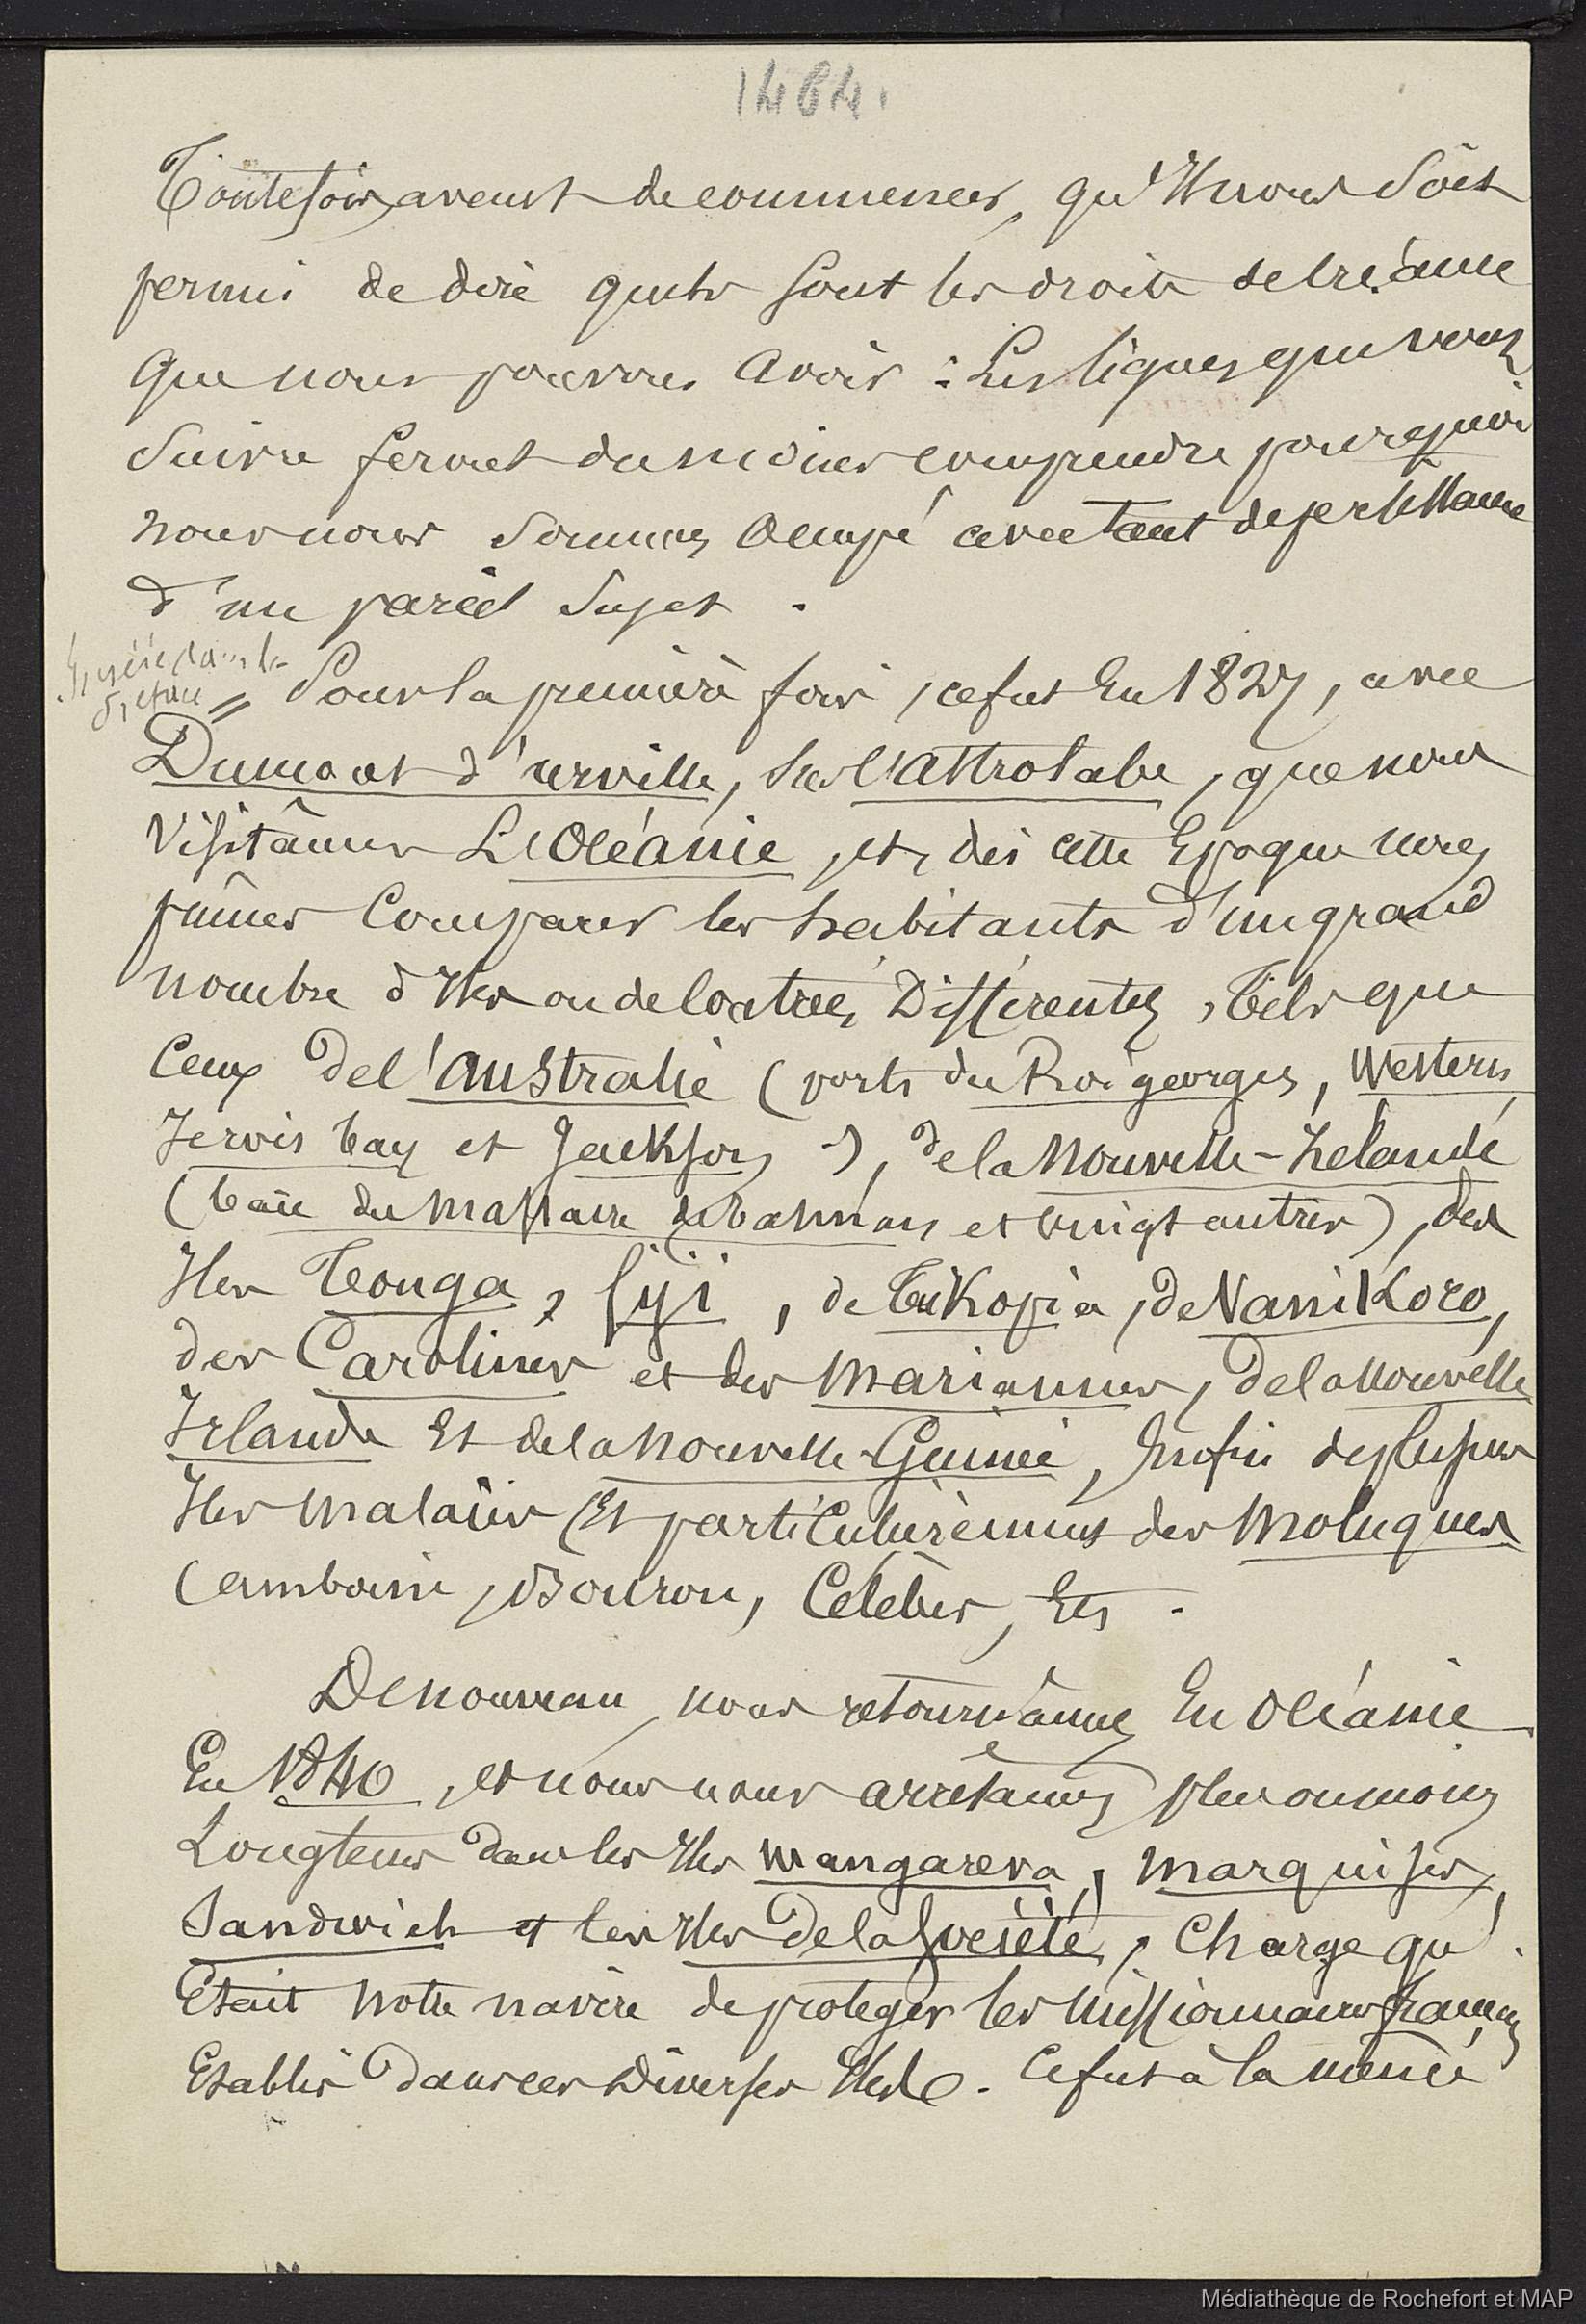 1464.
Toutefois, avant de commencer, qu'il nous soit
permi de dire quels sont les droits de créance
que nous pouvons avoir : Les lignes qui vont
suivre feront du moins comprendre pourquoi
nous nous sommes occupé avec tant de persistance
d'un pareil sujet .
Insérée dans la
préface
= Pour la première fois, ce fut en 1827, avec
Dumont d'urville, sur l'astrolabe, que nous
visitâmes L'Océanie, et, dès cette Epoque nous
pûmes comparer les habitants d'un grand
nombre d'Iles ou de contrées Différentes, tels que
ceux del'australie (ports du Roi georges, Western,
Jervis bay et Jackson -), de la Nouvelle-Zélande
(baie du massacre des tasman et vingt autres), des
Iles Tonga, fiji, de Tukopia, de Vanikoro,
des Carolines et des mariannes, de la nouvelle
Irlande Et de la nouvelle-Guinée, Enfin des plusieurs
Iles malaises (Et particulièrement des moluques
(amboine, Bourou, Célèbes, Etc .
De nouveau, nous retournâmes En Océanie
En 1840, et nous nous arrêtâmes plus ou moins
Longtems dans les Iles mangareva, marquises,
Sandwich et les Iles de la société, chargé qu'
Etait notre navire de protéger les missionnaires français
Etablis dans ces Diverses Iles. Ce fut à la même
Médiathèque de Rochefort et MAP